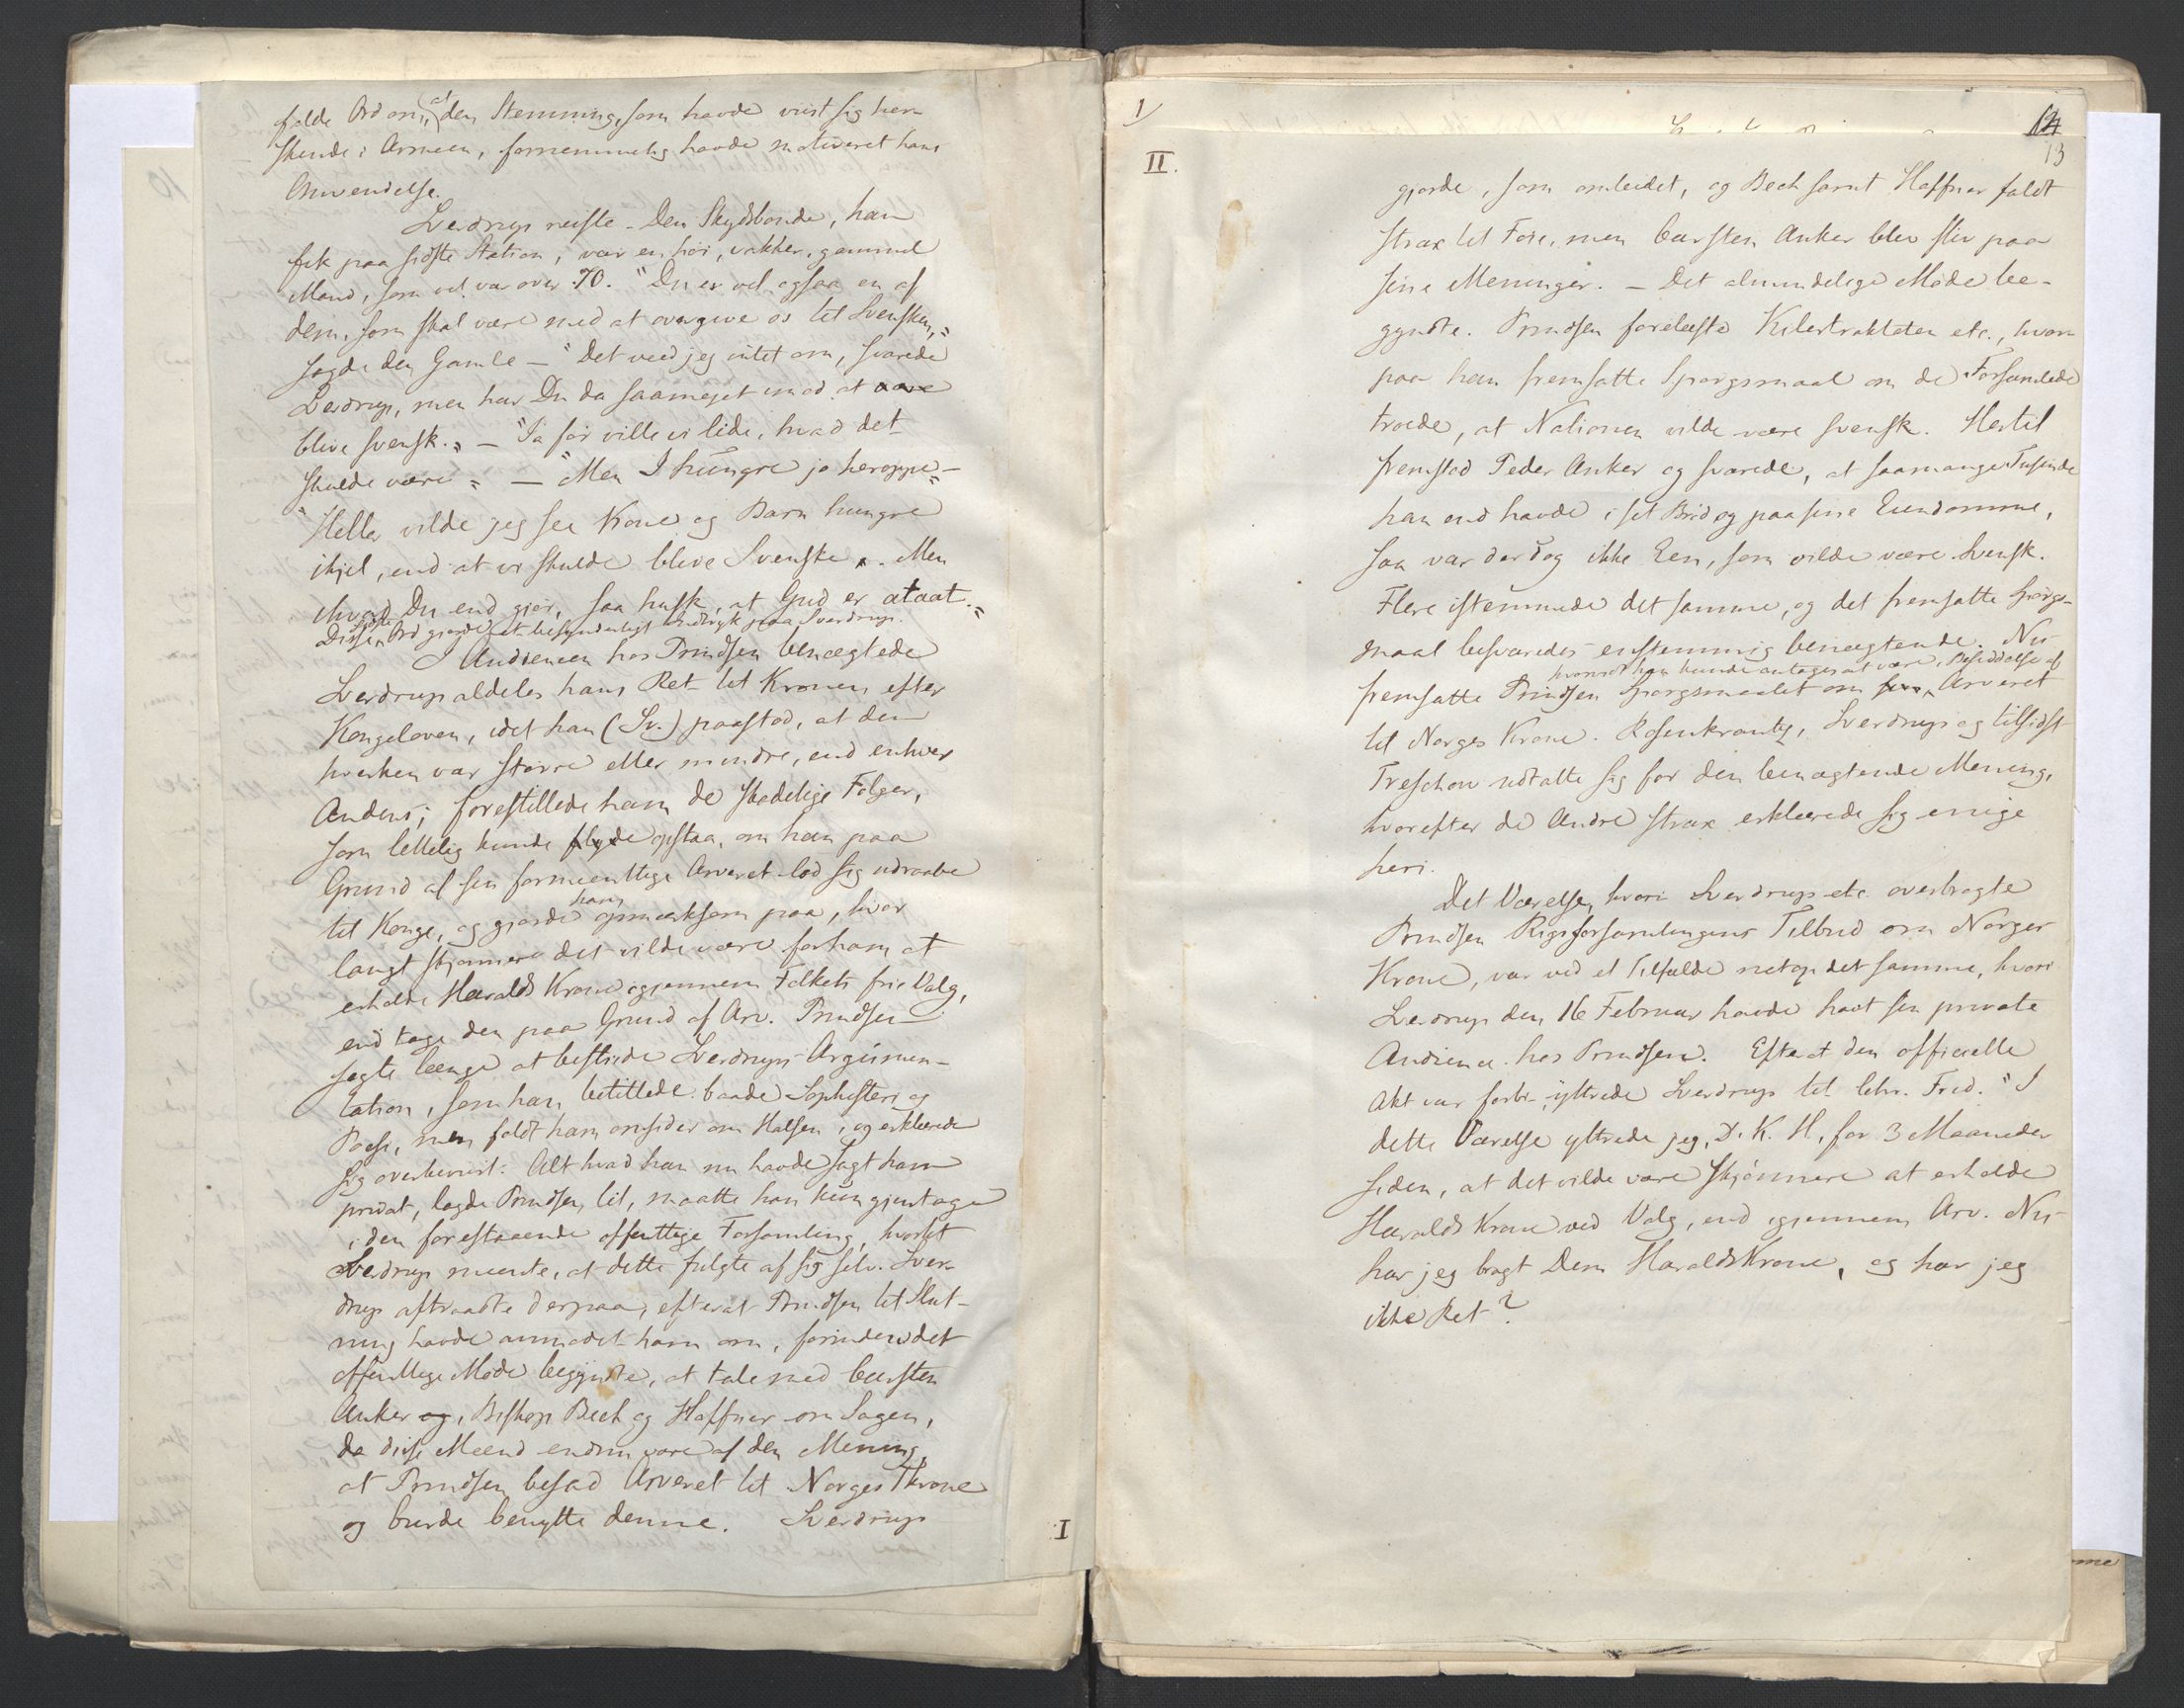 fælde Ord om, at den Stemning, som havde viist sig her-
skende i Armeen, fornemmelig havde motiveret hans
Anvendelse.
Sverdrup reiste. Den Skydsbonde, han
fik paa sidste Station, var en høi, vakker, gammel
Mand, som vel var over 70. "Du er vel ogsaa en af
dem, som skal være med at overgive os til Svensken,"
sagde den Gamle — "Det veed jeg intet om, svarede
Sverdrup, men har Du da saameget imod at
blive svensk." — "Ja før ville vi lide, hvad det
skulde være" — "Men I hungre jo heroppe —"
"Heller vilde jeg see Kone og Barn hungre
ihjel, end at vi skulde blive Svenske. Men
hvad Du end gjør, saa husk, at Gud er attaat."
Disse sidste Ord gjorde et besynderligt Indtryk paa Sverdrup.
I Audiencen hos Prindsen benægtede
Sverdrup aldeles hans Ret til Kronen efter
Kongeloven, idet han (Sv.) paastod, at den
hverken var større eller mindre, end enhver
Andens; forestillede ham de skadelige Følger,
som lettelig kunde flyde opstaa, om han paa
Grund af sin formeentlige Arveret lod sig udraabe
til Konge, og gjorde ham opmærksom paa, hvor
langt skjønnere det vilde være for ham at
erholde Haralds Krone igjennem Folkets frie Valg,
end tage den paa Grund af Arv. Prindsen
søgte længe at bestride Sverdrups Argumen-
tation, som han betitlede baade Sophisteri og
Poesi, men faldt ham omsider om Halsen, og erklærede
sig overbeviist. Alt hvad han nu havde sagt ham
privat, lagde Prindsen til, maatte han kun gjentage
i den forestaaende offentlige Forsamling, hvortil
Sverdrup meente, at dette fulgte af sig selv. Sver-
drup aftraadte derpaa, efterat Prindsen til Slut-
ning havde anmodet ham om, forinden det
offentlige Møde begyndte, at tale med Carsten
Anker og, Biskop Bech og Haffner om Sagen,
da disse Mænd endnu vare af den Mening,
at Prindsen besad Arveret til Norges Throne
og burde benytte denne. Sverdrup
I
1/
12
13
II.
gjorde, som ombedet, og Bech samt Haffner faldt
strax til Føie, men Carsten Anker blev stiv paa
sine Meninger. — Det almindelige Møde be-
gyndte. Prindsen forelæste Kielertraktaten etc., hvor-
paa han fremsatte Spørgsmaal om de Forsamlede
troede, at Nationen vilde være svensk. Hertil
fremstod Peder Anker og svarede, at saamange Tusinde
han end havde i sit Brød og paa sine Eiendomme,
saa var der dog ikke Een, som vilde være Svensk.
Flere istemmede det samme, og det fremsatte Spørgs-
maal besvaredes enstemmig benægtende. Nu
hvorvidt han kunde antages at være i Besiddelse af
fremsatte Prindsen Spørgsmaalet om Arveret
til Norges Krone. Rosenkrantz, Sverdrup og tilsidst
Treschow udtalte sig for den benægtende Mening,
hvorefter de Andre strax erklærede sig enige
heri.
Det Værelse, hvori Sverdrup etc. overbragte
Prindsen Rigsforsamlingens Tilbud om Norges
Krone, var ved et Tilfælde netop det samme, hvori
Sverdrup den 16 Februar havde havt sin private
Audience hos Prindsen. Efterat den officielle
Akt var forbi yttrede Sverdrup til Chr. Fred. "I
dette Værelse yttrede jeg, D. K. H., for 3 Maaneder
siden, at det vilde være skjønnere at erholde
Haralds Krone ved Valg, end igjennem Arv. Nu
har jeg bragt Dem Haralds Krone, og har jeg
ikke Ret?